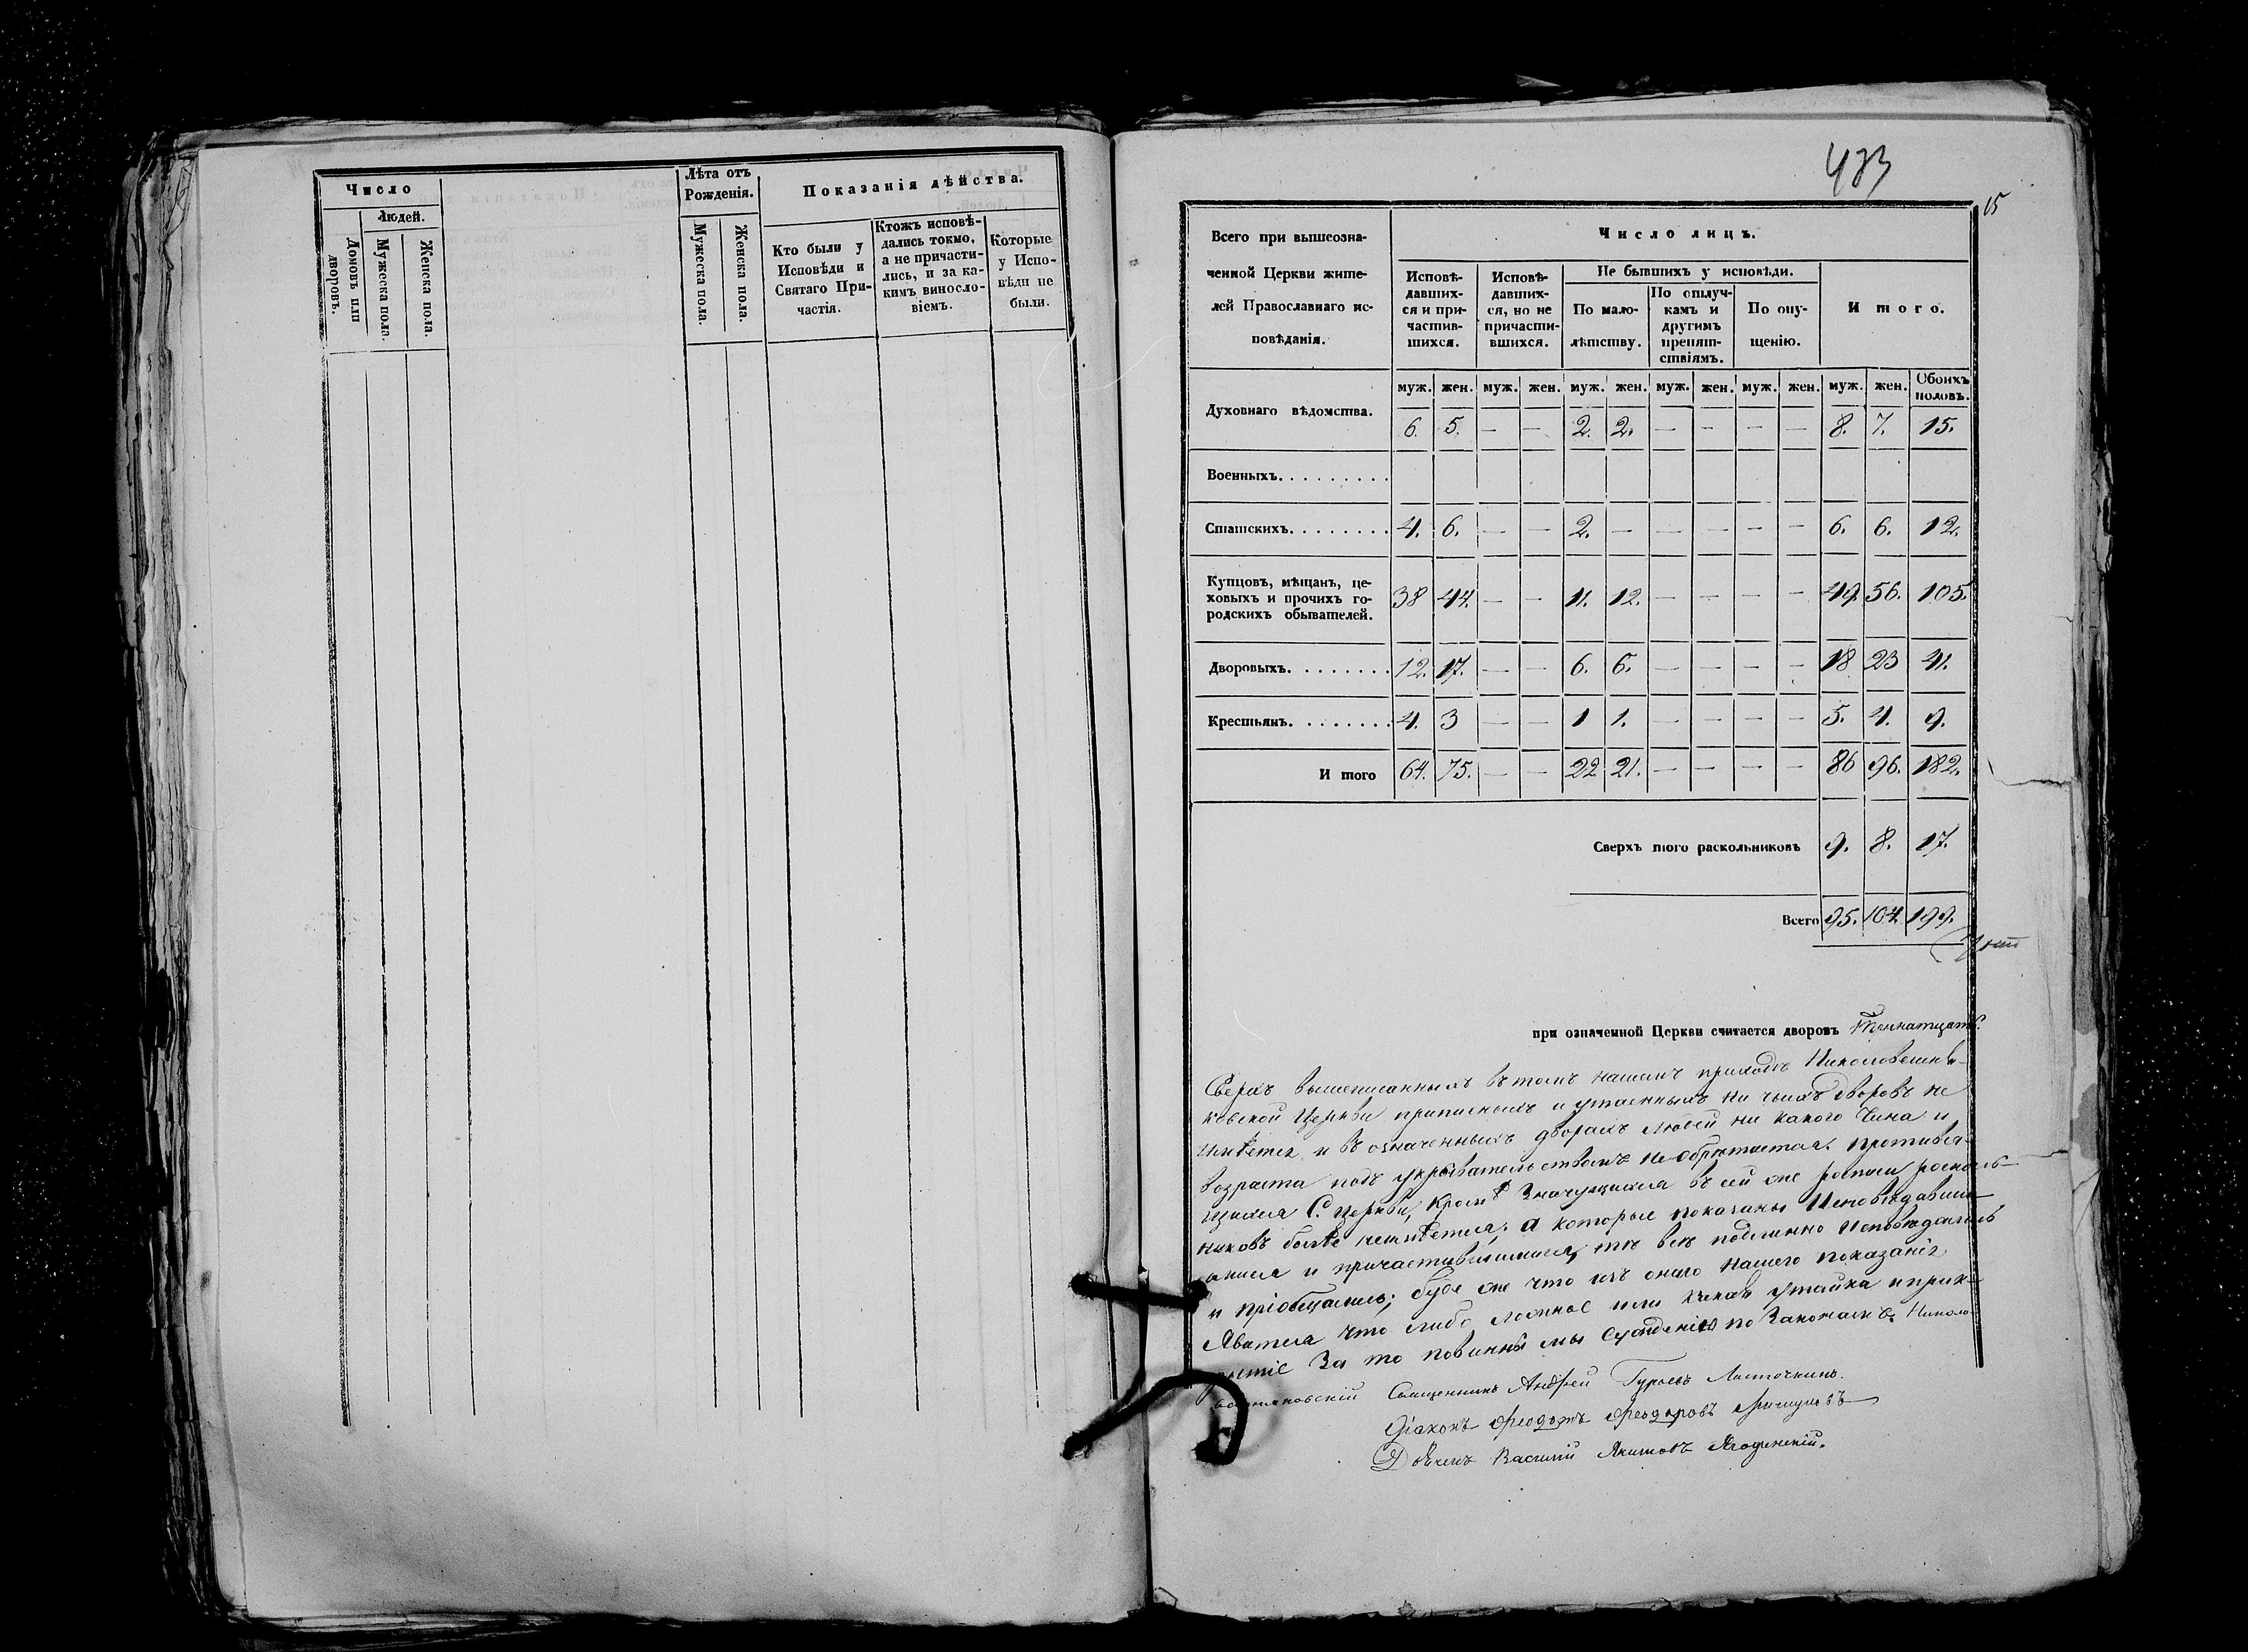 Число
Людей.
Домовъ или дворовъ.
Мужеска пола.
Женска пола.
Лѣта отъ
Рожденія.
Мужеска пола.
Женска пола.
Показанія дѣйства.
Кто были у
Исповѣди и
Святаго При-
частія.
Ктожъ исповѣ-
дались токмо,
а не причасти-
лись, и за ка-
кимъ винносло-
віемъ.
Которые
у Испо-
вѣди не
были.
483
15
Всего при вышеозна-
ченной Церкви жите-
лей Православнаго ис-
повѣданія.
Число лицъ.
Исповѣ-
давших-
ся и при-
частив-
шихся.
Исповѣ-
давших-
ся, но не
причасти-
вшихся.
Не бывшихъ у исповѣди.
По мало-
лѣтству.
По отлуч-
камъ и
другимъ
препят-
ствіямъ.
По опу-
щенію.
Итого.
муж. жен. муж. жен. муж. жен. муж. жен. муж. жен. муж. жен. Обоихъ половъ.
Духовнаго вѣдомства. 6. 5. — — 2. 2. — — — — 8. 7. 15.
Военныхъ.........
Статскихъ........ 4. 6. — — 2. — — — — — 6. 6. 12.
Купцовъ, мѣщанъ, це-
ховыхъ и прочихъ го-
родскихъ обывателей. 38 44. — — 11. 12. — — — — 49. 56. 105.
Дворовыхъ........ 12. 17. — — 6. 6. — — — — 18 23 41.
Крестьянъ........ 4. 3 — — 1 1. — — — — 5. 4. 9.
И того 64. 75. — — 22 21. — — — — 86 96. 182.
Сверхъ того раскольниковъ 9. 8. 17.
Всего 95. 104. 199.
при означенной Церкви считается дворовъ
Сверхъ вышеписанныхъ въ томъ нашемъ приходѣ
ковской Церкви приписныхъ и утаенныхъ ни чьихъ дворовъ не
имѣется и въ означенныхъ дворахъ людей ни какого чина и
возраста подъ укрывательствомъ не обрѣтается. противля-
щихся С. Церкви, кромѣ значущихся въ сей же росписи росколь-
никовъ болѣе неимѣется; а которые показаны Исповѣдавши-
мися и причастившимися, тѣ всѣ подлинно исповѣдались
и пріобщались; буде же что изъ онаго нашего показанія
Явится что либо ложное или какая утайка и прик-
рытіе За то повинны мы сужденію по Законамъ. Николо
Священникъ Андрей Гурьевъ Ласточкинъ.
Діаконъ Ѳеодотъ Ѳеодоровъ
Дьячекъ Василій Якимовъ Ягодинскій.